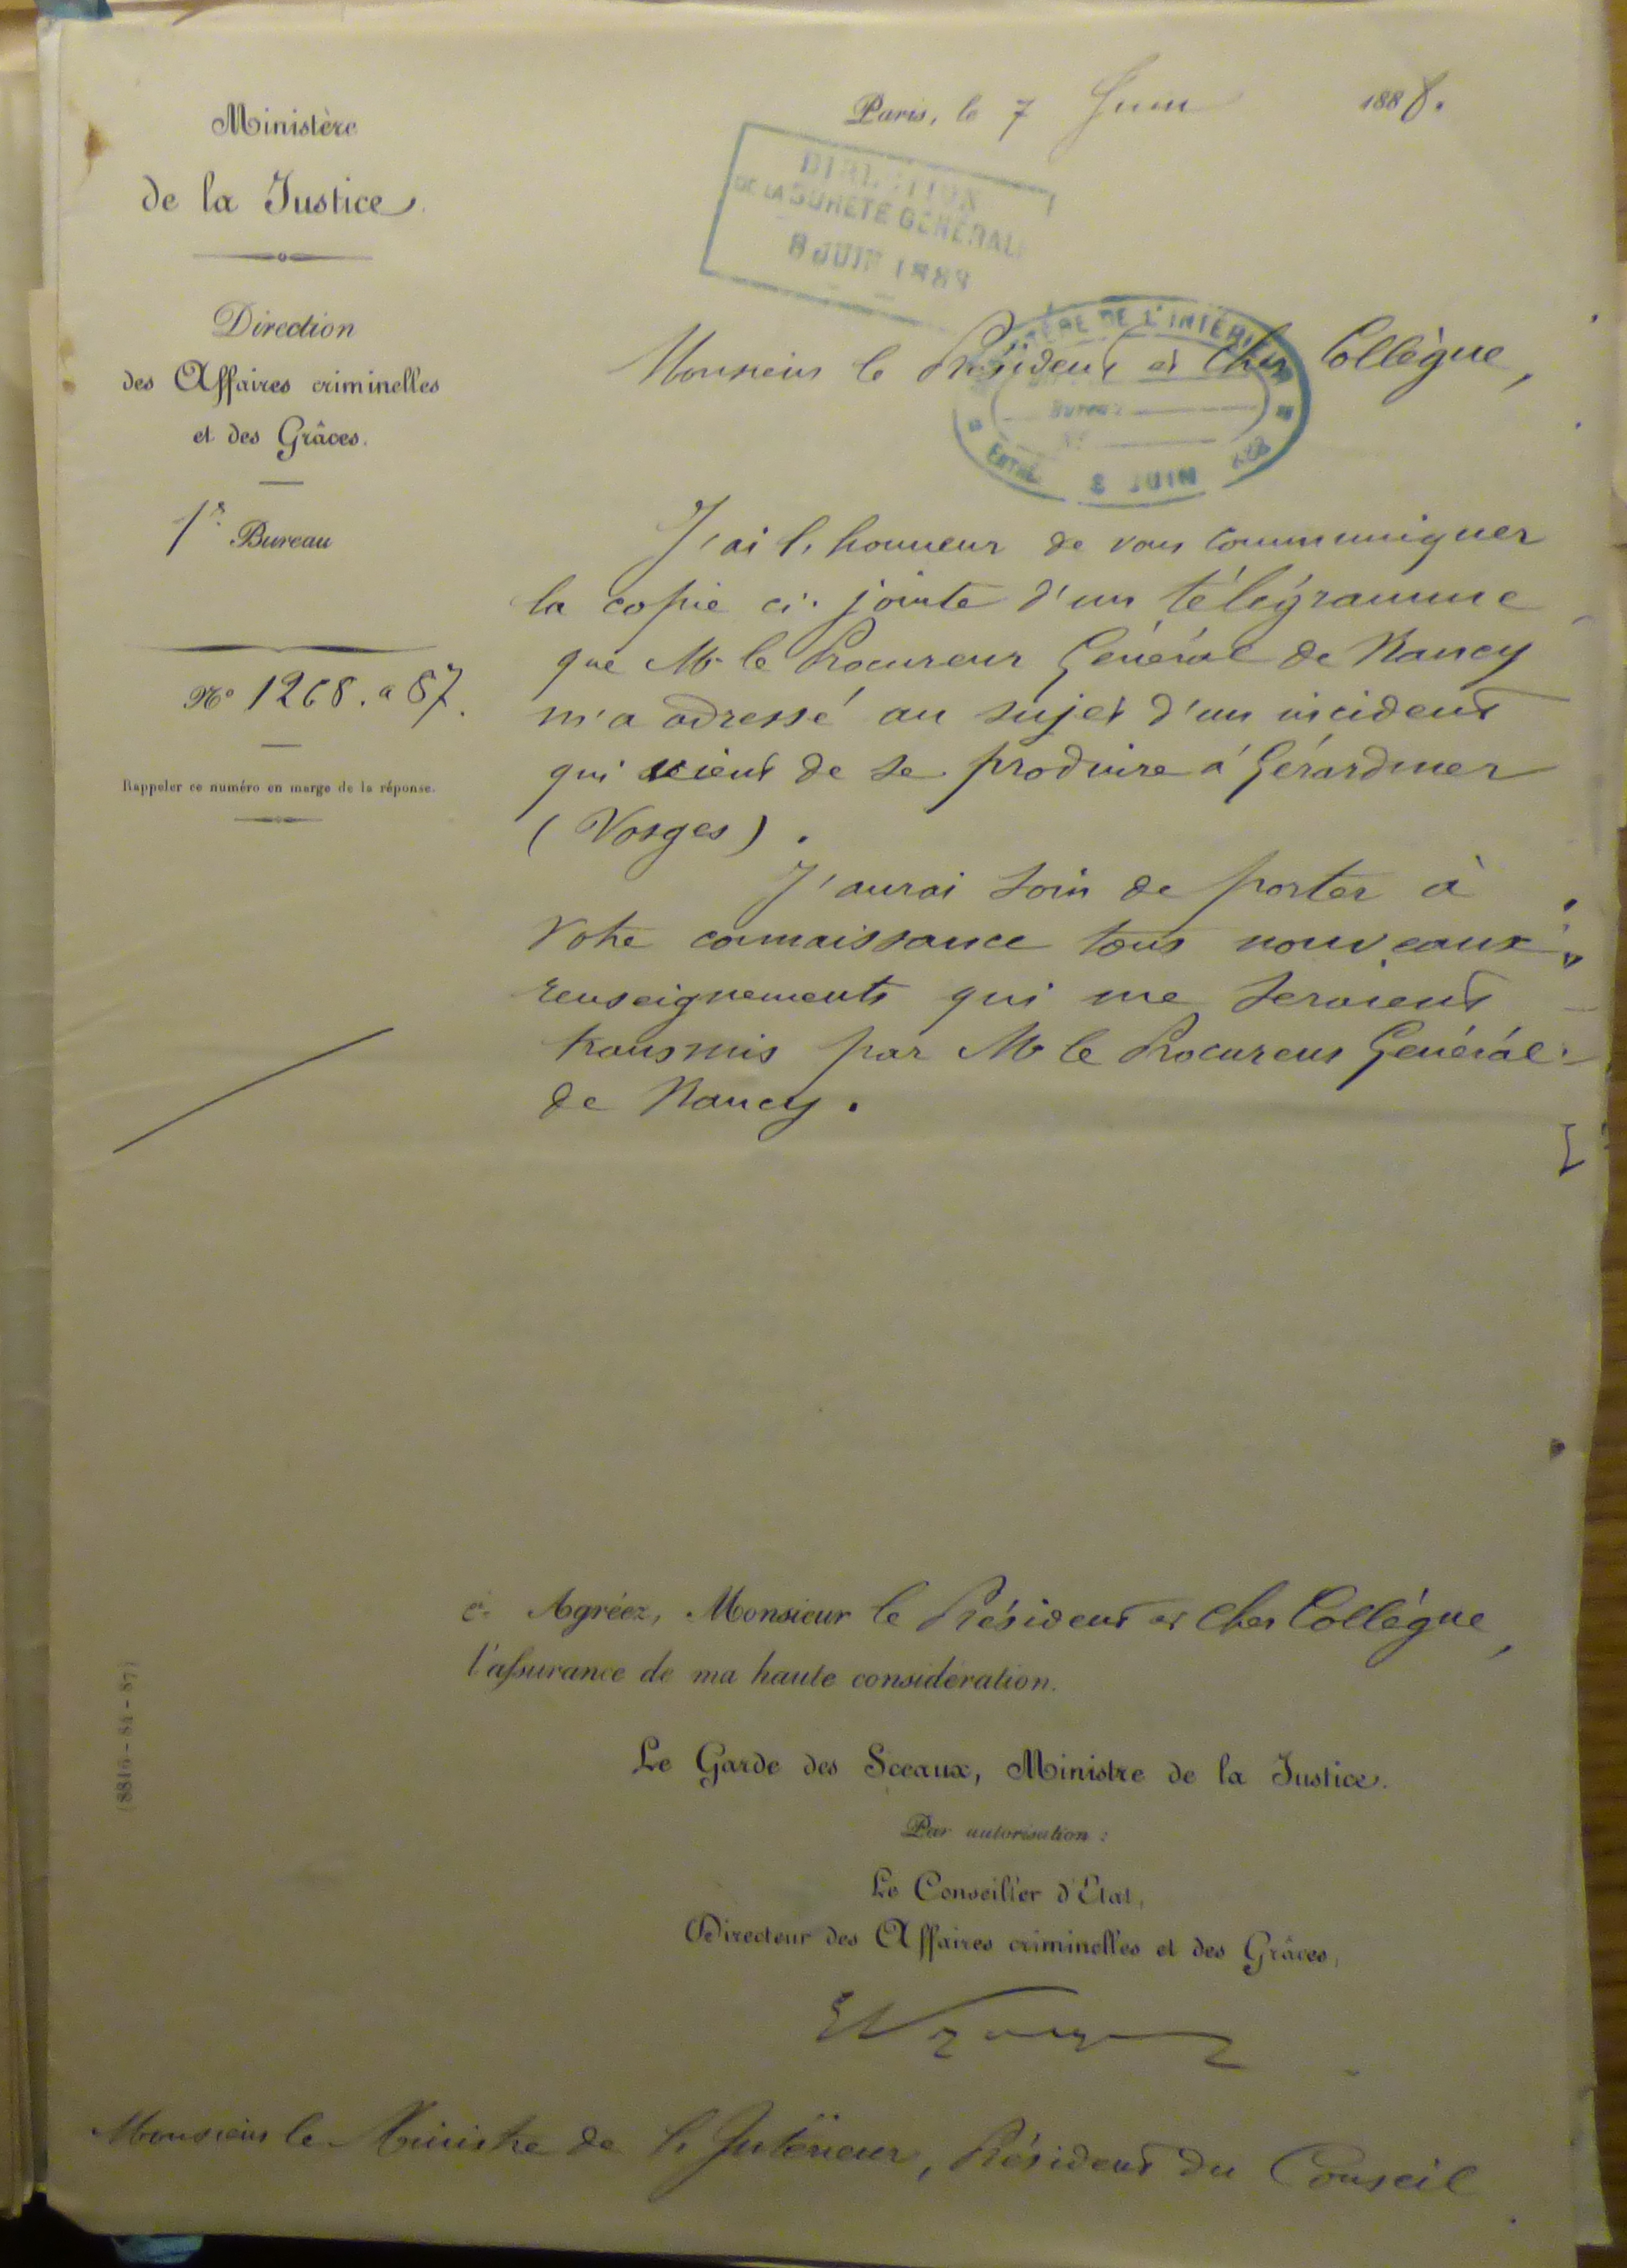 Ministère
de la Justice.
Direction
des Affaires criminelles
et des Grâces.
1er Bureau
No 1268. a 87.
Rappeler ce numéro en marge de la réponse.
Paris, le 7 Juin 1888.
DIRECTION
DE LA SURETÉ GÉNÉRALE
8 JUIN 1888
MINISTÈRE DE L'INTÉRIEUR
Bureau
No
ENTRÉE 8 JUIN 188
Monsieur le Président et cher Collègue,
J'ai l'honneur de vous communiquer
la copie ci-jointe d'un télégramme
que Mr le Procureur Général de Nancy
m'a adressé au sujet d'un incident
qui vient de se produire à Gérardmer
(Vosges).
J'aurai soin de porter à
votre connaissance tous nouveaux
renseignements qui me seraient
transmis par Mr le Procureur Général
de Nancy.
Agréez, Monsieur le Président et cher Collègue,
l'assurance de ma haute considération.
Le Garde des Sceaux, Ministre de la Justice.
Par autorisation :
Le Conseiller d'Etat,
Directeur des Affaires criminelles et des Grâces,
Monsieur le Ministre de l'Intérieur, Président du Conseil